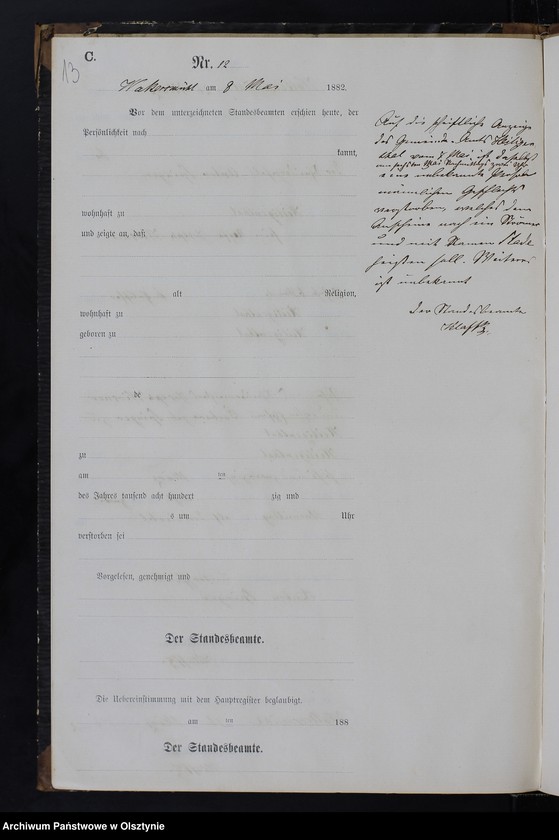 13
C.
Nr. 12
am 8 Mai 1882.
Vor dem unterzeichneten Standesbeamten erschien heute, der
Persönlichkeit nach
kannt,
wohnhaft zu
und zeigte an, daß
alt Religion,
wohnhaft zu
geboren zu
zu
am
des Jahres tausend acht hundert zig und
s um Uhr
verstorben sei
Vorgelesen, genehmigt und
Der Standesbeamte.
Die Uebereinstimmung mit dem Hauptregister beglaubigt.
am 188
Der Standesbeamte.
Auf die schriftliche Anzeige
des Gemeinde-Amts Heiligen
thal vom 8 Mai ist daselbst
eine unbekannte Person
männlichen Geschlechts
verstorben, welches dem
Anscheine nach ein
und mit Namen
heißen soll. Weiteres
ist unbekannt
Der Standesbeamte
Archiwum Państwowe w Olsztynie